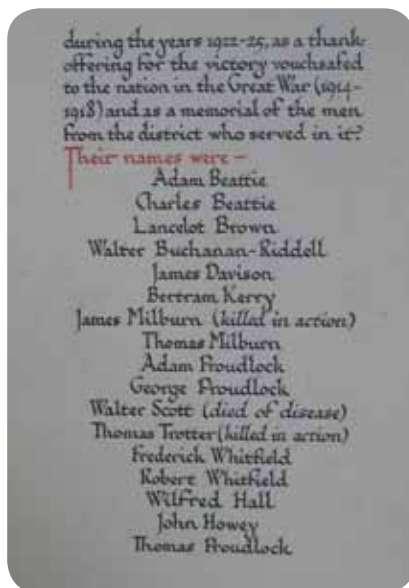 during the years 1922-25, as a thank-
offering for the victory vouchsafed
to the nation in the Great War (1914-
1918) and as a memorial of the men
from the district who served in it?
Their names were –
Adam Beattie
Charles Beattie
Lancelot Brown
Walter Buchanan-Riddell
James Davison
Bertram Kerry
James Milburn (killed in action)
Thomas Milburn
Adam Proudlock
George Proudlock
Walter Scott (died of disease)
Thomas Trotter (killed in action)
Frederick Whitfield
Robert Whitfield
Wilfred Hall
John Howey
Thomas Proudlock